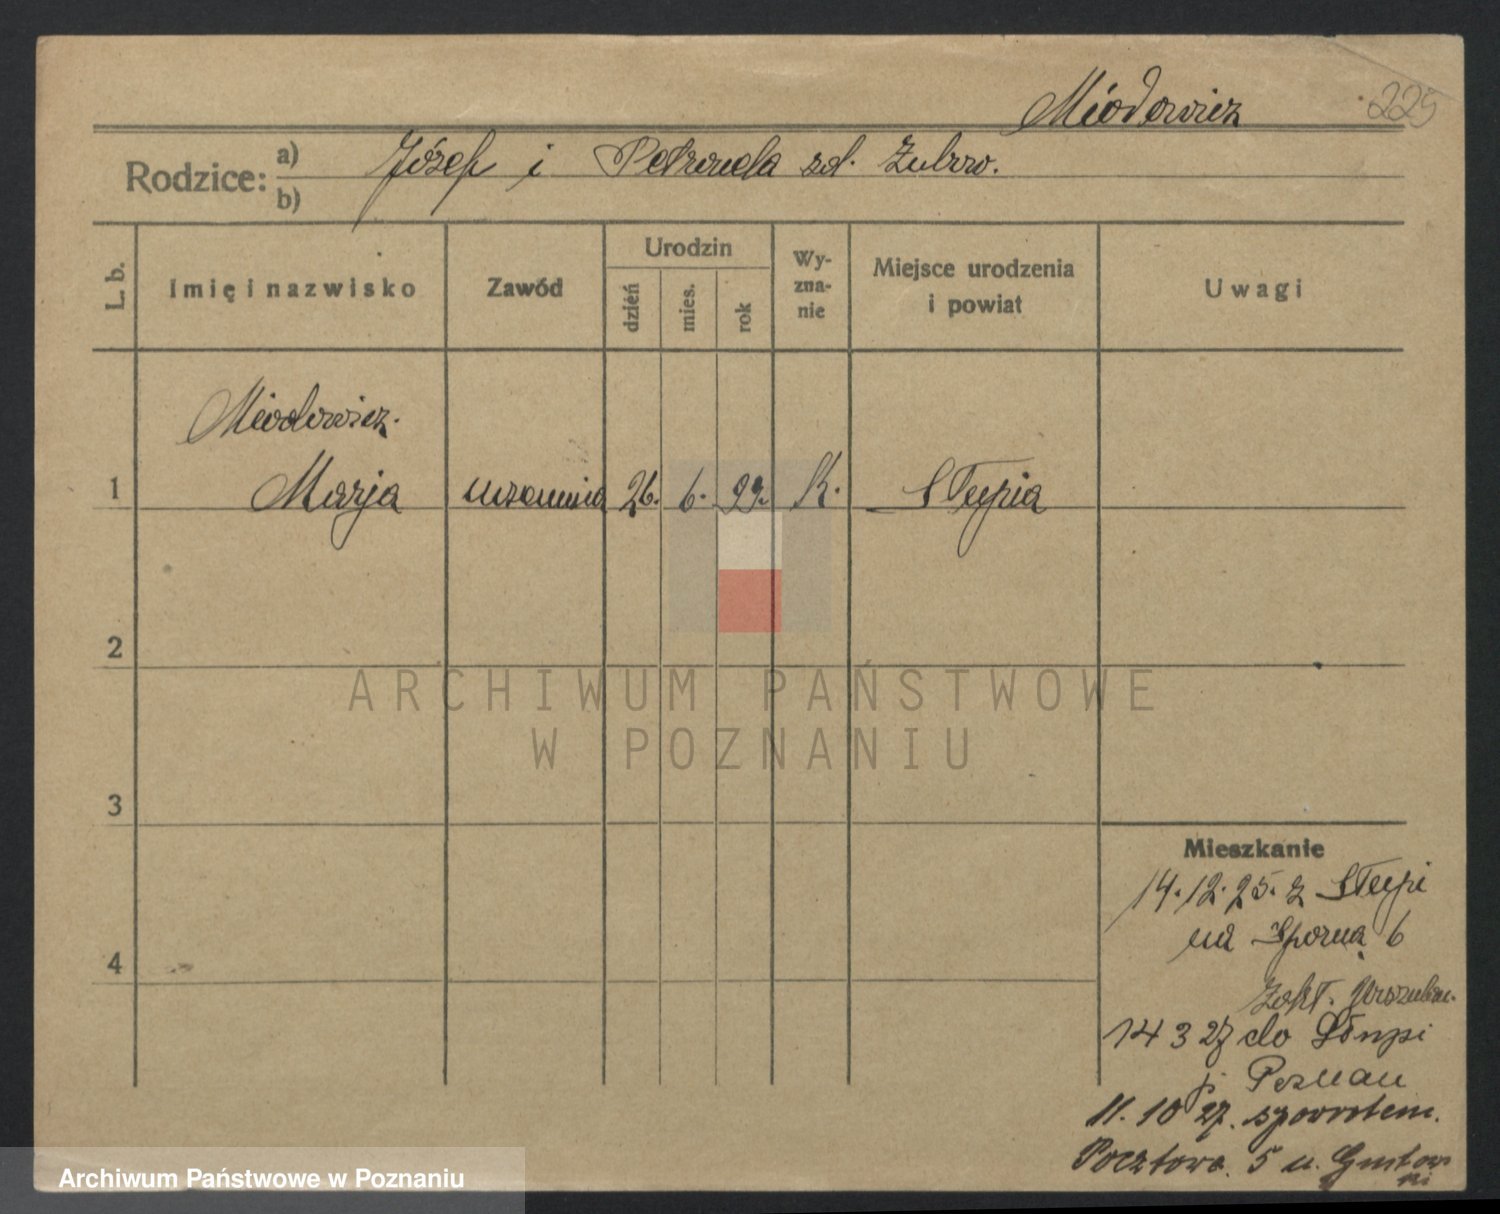 Miodowicz
225
Rodzice: a) Józef i Petronela zd. Zubow.
b)
L. b. Imię i nazwisko Zawód Urodzin dzień mies. rok Wy-zna-nie Miejsce urodzenia i powiat Uwagi
Miodowicz.
1 Marja uczennica 26. 6. K. Słupia
2
ARCHIWUM PAŃSTWOWE
W POZNANIU
3
Mieszkanie
14.12.25. z Słupi
na Sporna 6
4
Zakł. Urszulan.
14 3 27 do Słupi
p. Poznań
11.10 27. spowrotem.
Pocztowa 5 u.
Archiwum Państwowe w Poznaniu